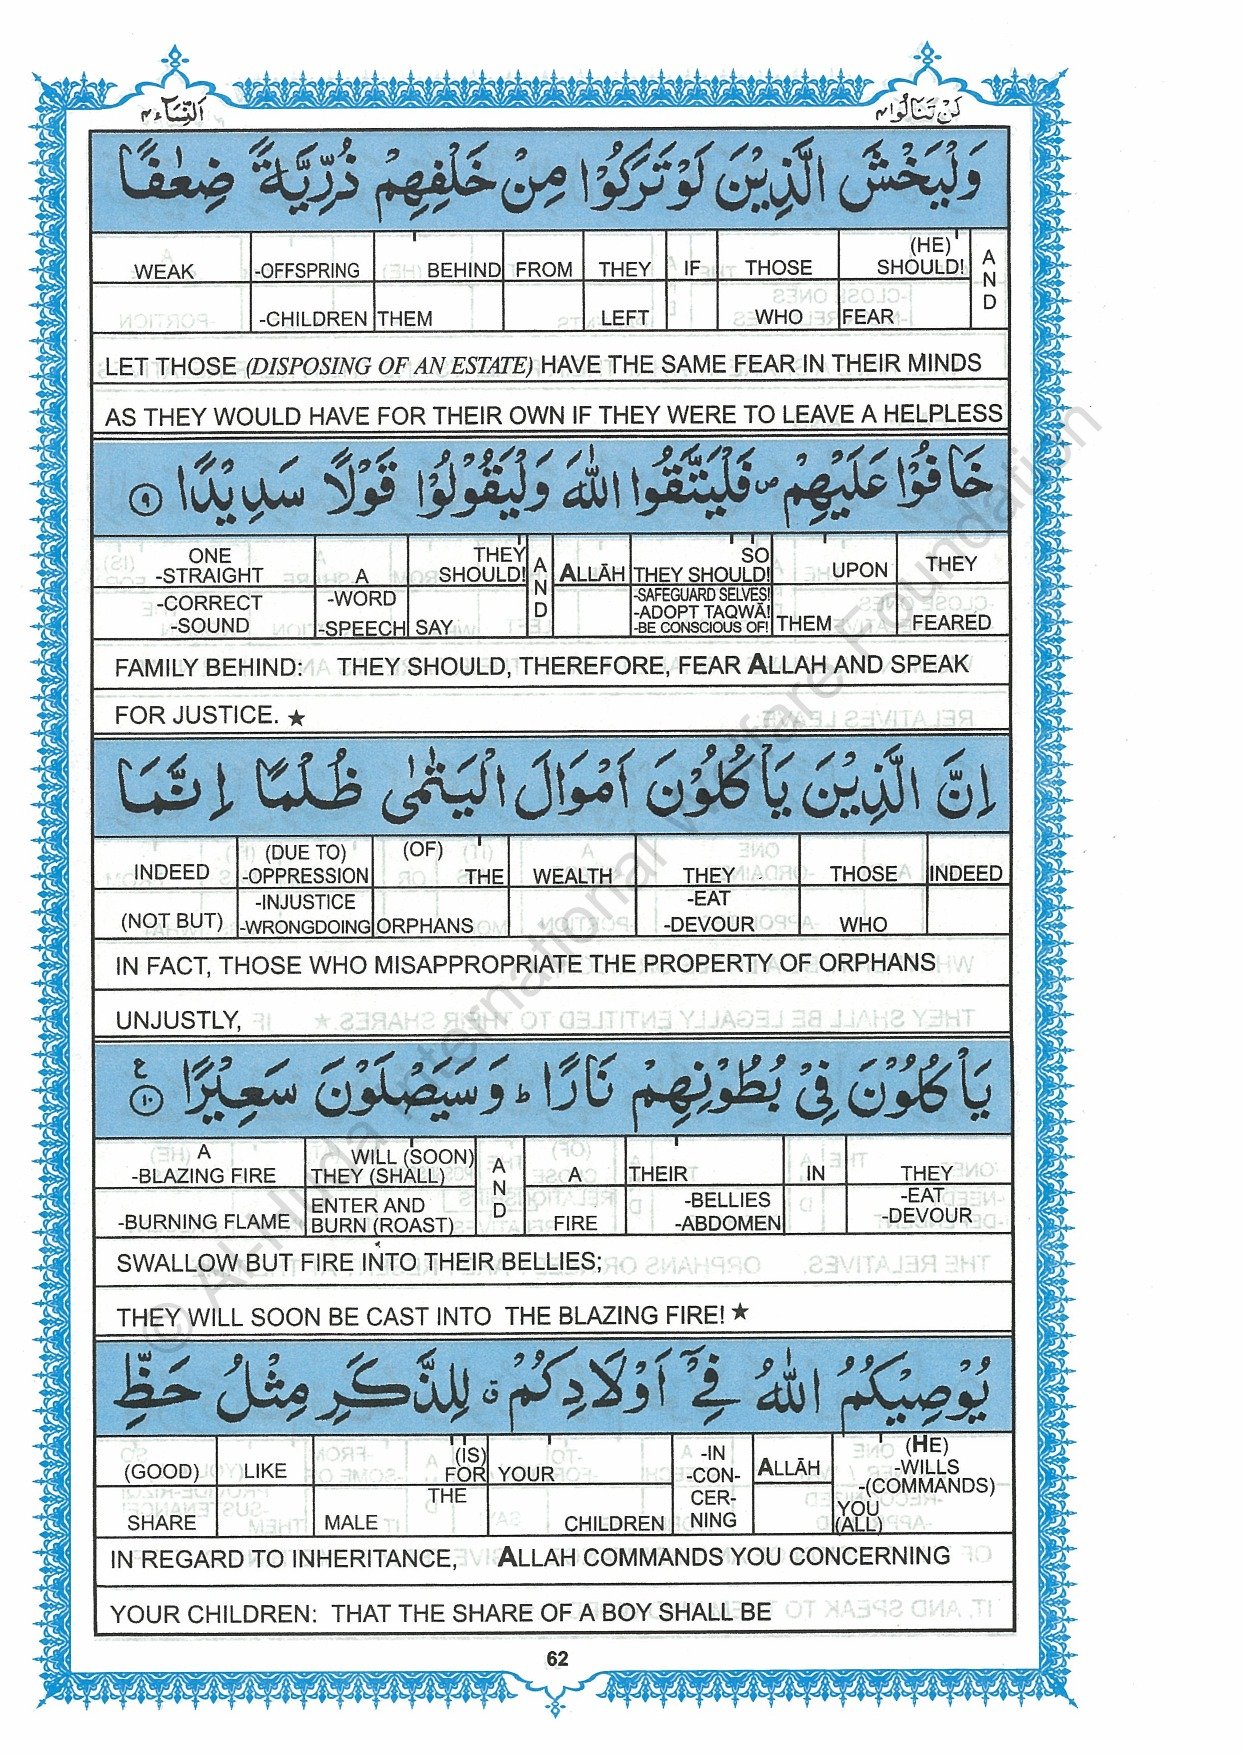 اَلنِّسَآء ٤
لَنْ تَنَالُوا ٤
وَلْيَخْشَ الَّذِيْنَ لَوْ تَرَكُوْا مِنْ خَلْفِهِمْ ذُرِّيَّةً ضِعٰفًا
WEAK -OFFSPRING BEHIND FROM THEY IF THOSE (HE) SHOULD! AND
-CHILDREN THEM LEFT WHO FEAR
LET THOSE (DISPOSING OF AN ESTATE) HAVE THE SAME FEAR IN THEIR MINDS
AS THEY WOULD HAVE FOR THEIR OWN IF THEY WERE TO LEAVE A HELPLESS
خَافُوْا عَلَيْهِمْ ص فَلْيَتَّقُوا اللّٰهَ وَلْيَقُوْلُوْا قَوْلًا سَدِيْدًا ٩
ONE -STRAIGHT A THEY SHOULD! AND ALLĀH SO THEY SHOULD! UPON THEY
-CORRECT -SOUND -WORD -SPEECH SAY -SAFEGUARD SELVES! -ADOPT TAQWĀ! -BE CONSCIOUS OF! THEM FEARED
FAMILY BEHIND: THEY SHOULD, THEREFORE, FEAR ALLAH AND SPEAK
FOR JUSTICE. ★
اِنَّ الَّذِيْنَ يَاْكُلُوْنَ اَمْوَالَ الْيَتٰمٰى ظُلْمًا اِنَّمَا
INDEED (DUE TO) -OPPRESSION (OF) THE WEALTH THEY THOSE INDEED
(NOT BUT) -INJUSTICE -WRONGDOING ORPHANS -EAT -DEVOUR WHO
IN FACT, THOSE WHO MISAPPROPRIATE THE PROPERTY OF ORPHANS
UNJUSTLY,
يَاْكُلُوْنَ فِيْ بُطُوْنِهِمْ نَارًا ط وَسَيَصْلَوْنَ سَعِيْرًا ١٠ ع
A -BLAZING FIRE WILL (SOON) THEY (SHALL) AND A THEIR IN THEY
-BURNING FLAME ENTER AND BURN (ROAST) FIRE -BELLIES -ABDOMEN -EAT -DEVOUR
SWALLOW BUT FIRE INTO THEIR BELLIES;
THEY WILL SOON BE CAST INTO THE BLAZING FIRE! ★
يُوْصِيْكُمُ اللّٰهُ فِيْٓ اَوْلَادِكُمْ ق لِلذَّكَرِ مِثْلُ حَظِّ
(GOOD) LIKE (IS) FOR YOUR -IN -CON- CER- NING ALLĀH (HE) -WILLS -(COMMANDS)
SHARE THE MALE CHILDREN YOU (ALL)
IN REGARD TO INHERITANCE, ALLAH COMMANDS YOU CONCERNING
YOUR CHILDREN: THAT THE SHARE OF A BOY SHALL BE
62
© Al-Huda International Welfare Foundation